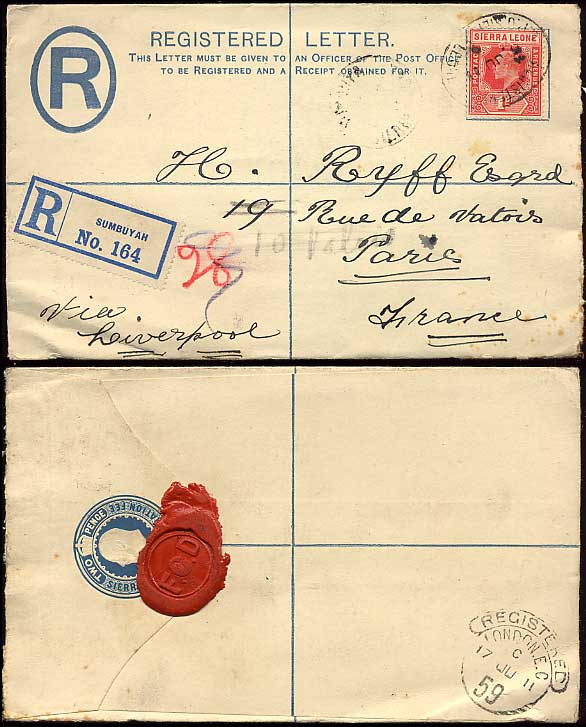 R
REGISTERED LETTER.
THIS LETTER MUST BE GIVEN TO AN OFFICER OF THE POST OFFICE
TO BE REGISTERED AND A RECEIPT OBTAINED FOR IT.
SIERRA LEONE
POSTAGE
H. Ryff Esqrd
19 Rue de Valois
Paris
France
R
SUMBUYAH
No. 164
28
To Valois
via
Liverpool
TWO PENCE
SIERRA
REGISTERED
LONDON.E.C
C
17 JU 11
59